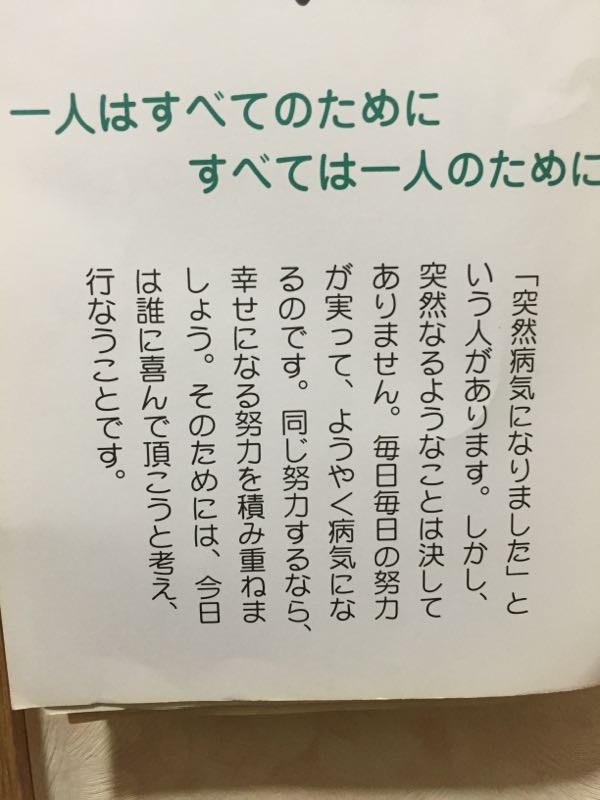 一人はすべてのために
すべては一人のために
「突然病気になりました」と
いう人があります。しかし、
突然なるようなことは決して
ありません。毎日毎日の努力
が実って、ようやく病気にな
るのです。同じ努力するなら、
幸せになる努力を積み重ねま
しょう。そのためには、今日
は誰に喜んで頂こうと考え、
行なうことです。